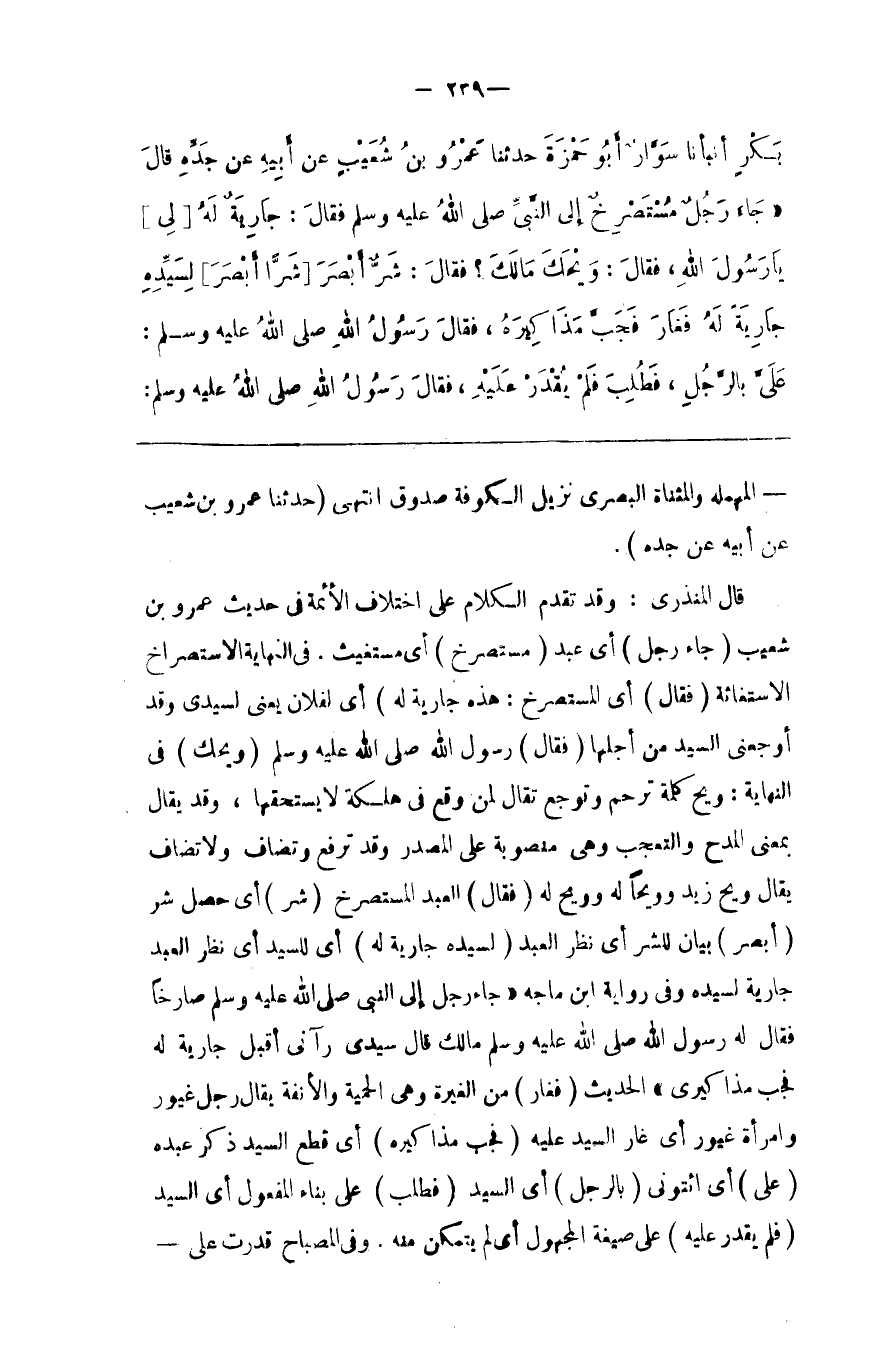 — ٢٣٩ —
بَكْرٍ أنبأنا سَوَّارٌ أَبُو حَمْزَةَ حدثنا عَمْرُو بنُ شُعَيْبٍ عن أَبِيهِ عن جَدِّهِ قالَ
« جَاءَ رَجُلٌ مُسْتَصْرِخٌ إلى النَّبيِّ صلى اللهُ عليه وسلم فقالَ : جَارِيَةٌ لَهُ [ لِى ]
يَارَسُولَ اللهِ ، فقالَ : وَيْحَكَ مَالَكَ ؟ فقالَ : شَرٌّ أَبْصَرَ [شَرًّا أَبْصَرَ] لِسَيِّدِهِ
جَارِيَةً لَهُ فَغَارَ فَجَبَّ مَذَاكِيرَهُ ، فقالَ رَسُولُ اللهِ صلى اللهُ عليه وسلم :
عَلَىَّ بالرَّجُلِ ، فَطُلِبَ فَلَمْ يُقْدَرْ عَلَيْهِ ، فقالَ رَسُولُ اللهِ صلى اللهُ عليه وسلم:
— المهمله والمثناة البصرى نزيل الكوفة صدوق انتهى (حدثنا عمرو بن شعيب
عن أبيه عن جده ) .
قال المنذرى : وقد تقدم الكلام على اختلاف الأئمة فى حديث عمرو بن
شعيب ( جاء رجل ) أى عبد ( مستصرخ ) أى مستغيث . فى النهاية الاستصراخ
الاستغاثة ( فقال ) أى المستصرخ : هذه جارية له ) أى لفلان يعنى لسيدى وقد
أوجعنى السيد من أجلها ( فقال ) رسول الله صلى الله عليه وسلم ( ويحك ) فى
النهاية : ويح كلمة ترحم وتوجع تقال لمن وقع فى هلكة لا يستحقها ، وقد يقال
بمعنى المدح والتعجب وهى منصوبة على المصدر وقد ترفع وتضاف ولا تضاف
يقال ويح زيد وويحاً له وويح له ( فقال ) العبد المستصرخ ( شر ) أى حصل شر
( أبصر ) بيان للشر أى نظر العبد ( لسيده جارية له ) أى للسيد أى نظر العبد
جارية لسيده وفى رواية ابن ماجه « جاء رجل إلى النبى صلى الله عليه وسلم صارخاً
فقال له رسول الله صلى الله عليه وسلم مالك قال سيدى رآنى أقبل جارية له
فجب مذاكيرى » الحديث ( فغار ) من الغيرة وهى الحمية والأنفة يقال رجل غيور
وامرأة غيور أى غار السيد عليه ( فجب مذاكيره ) أى قطع السيد ذكر عبده
( على ) أى ائتونى ( بالرجل ) أى السيد ( فطلب ) على بناء المفعول أى السيد
( فلم يقدر عليه ) على صيغة المجهول أى لم يتمكن منه . وفى المصباح قدرت على —